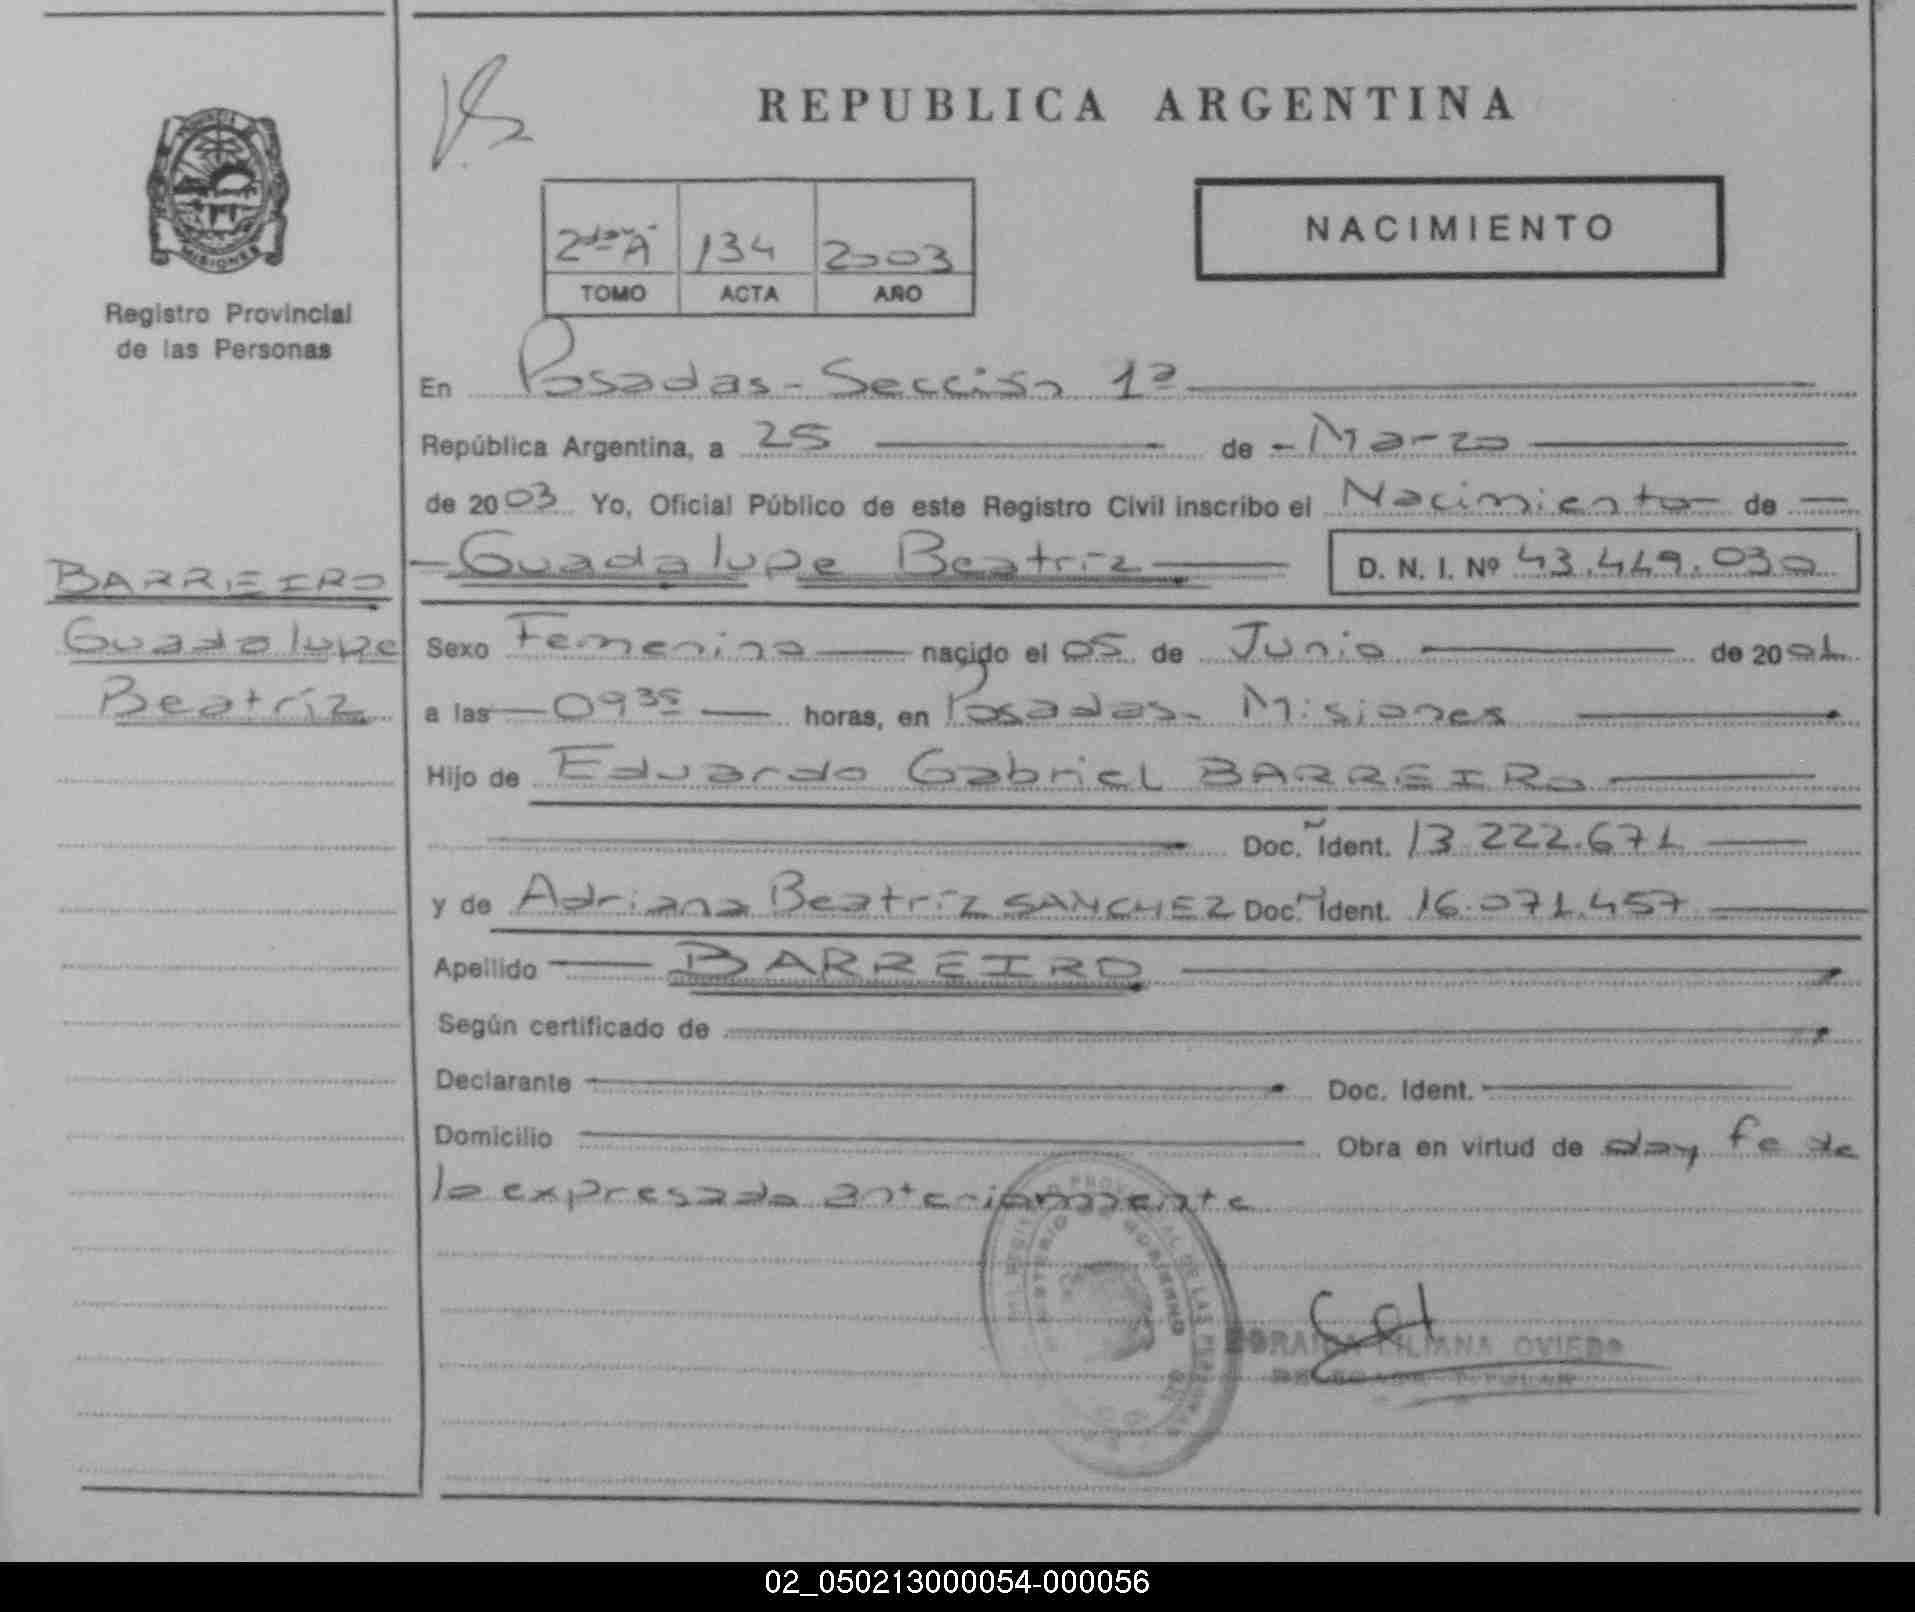 REPUBLICA ARGENTINA
NACIMIENTO
2da A 134 2003
TOMO ACTA AÑO
PROVINCIA DE MISIONES
Registro Provincial
de las Personas
En Posadas - Sección 1ª
República Argentina, a 25 de - Marzo
de 2003 Yo, Oficial Público de este Registro Civil inscribo el Nacimiento de
Guadalupe Beatríz D. N. I. Nº 43.449.030
BARREIRO
Guadalupe
Beatríz
Sexo Femenino nacido el 05 de Junio de 2001
a las 09 35 horas, en Posadas - Misiones
Hijo de Eduardo Gabriel BARREIRO
Doc. Ident. 13.222.671
y de Adriana Beatríz SANCHEZ Doc. Ident. 16.071.457
Apellido BARREIRO
Según certificado de
Declarante Doc. Ident.
Domicilio Obra en virtud de doy fe de
lo expresado anteriormente
LILIANA OVIEDO
TITULAR
02_050213000054-000056